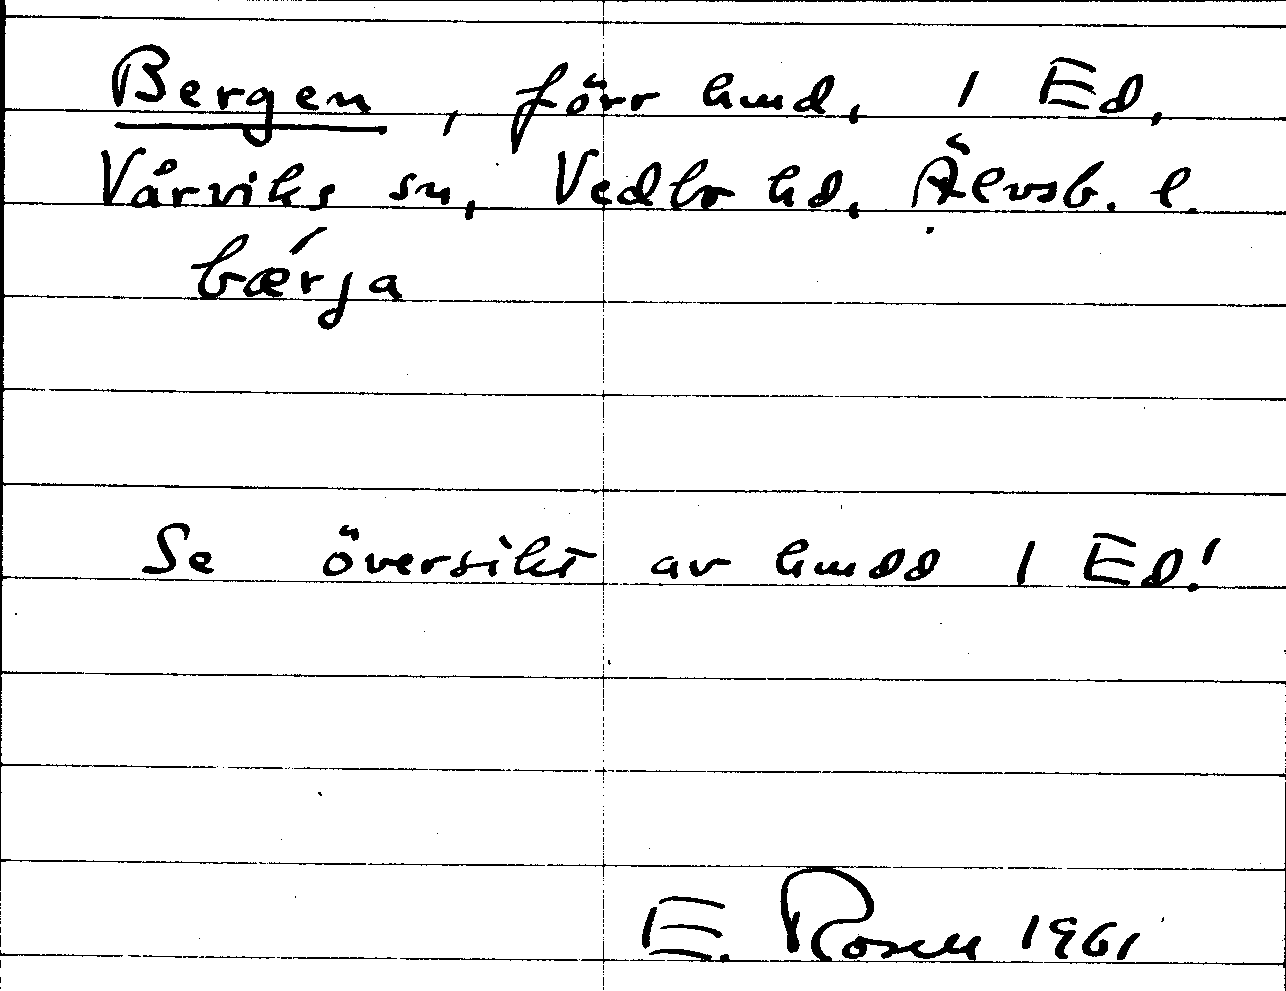 Bergen, förr hmd, 1 Ed,
Vårviks sn, Vedbo hd, Älvsb. l.
bǽrja
Se översikt av hmdd 1 Ed!
E. Rosen 1961